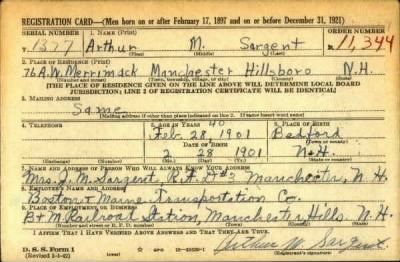 REGISTRATION CARD—(Men born on or after February 17, 1897 and on or before December 31, 1921)
SERIAL NUMBER 1. NAME (Print) ORDER NUMBER
1327 Arthur M. Sargent 11,344
(First) (Middle) (Last)
2. PLACE OF RESIDENCE (Print)
76 A.W. Merrimack Manchester Hillsboro N.H.
(Number and street) (Town, township, village, or city) (County) (State)
[THE PLACE OF RESIDENCE GIVEN ON THE LINE ABOVE WILL DETERMINE LOCAL BOARD
JURISDICTION; LINE 2 OF REGISTRATION CERTIFICATE WILL BE IDENTICAL]
3. MAILING ADDRESS
Same
[Mailing address if other than place indicated on line 2. If same insert word same]
4. TELEPHONE 5. AGE IN YEARS 40 6. PLACE OF BIRTH
Feb. 28, 1901 Bedford
DATE OF BIRTH (Town or county)
2 28 1901 N.H.
(Exchange) (Number) (Mo.) (Day) (Yr.) (State or country)
7. NAME AND ADDRESS OF PERSON WHO WILL ALWAYS KNOW YOUR ADDRESS
Mrs. J. M. Sargent R.F.D #3 Manchester, N.H.
8. EMPLOYER'S NAME AND ADDRESS
Boston & Maine Transportation Co.
9. PLACE OF EMPLOYMENT OR BUSINESS
B & M Railroad Station, Manchester Hills. N.H.
(Number and street or R. F. D. number) (Town) (County) (State)
I AFFIRM THAT I HAVE VERIFIED ABOVE ANSWERS AND THAT THEY ARE TRUE.
D. S. S. Form 1
(Revised 1-1-42) (over) Arthur M. Sargent